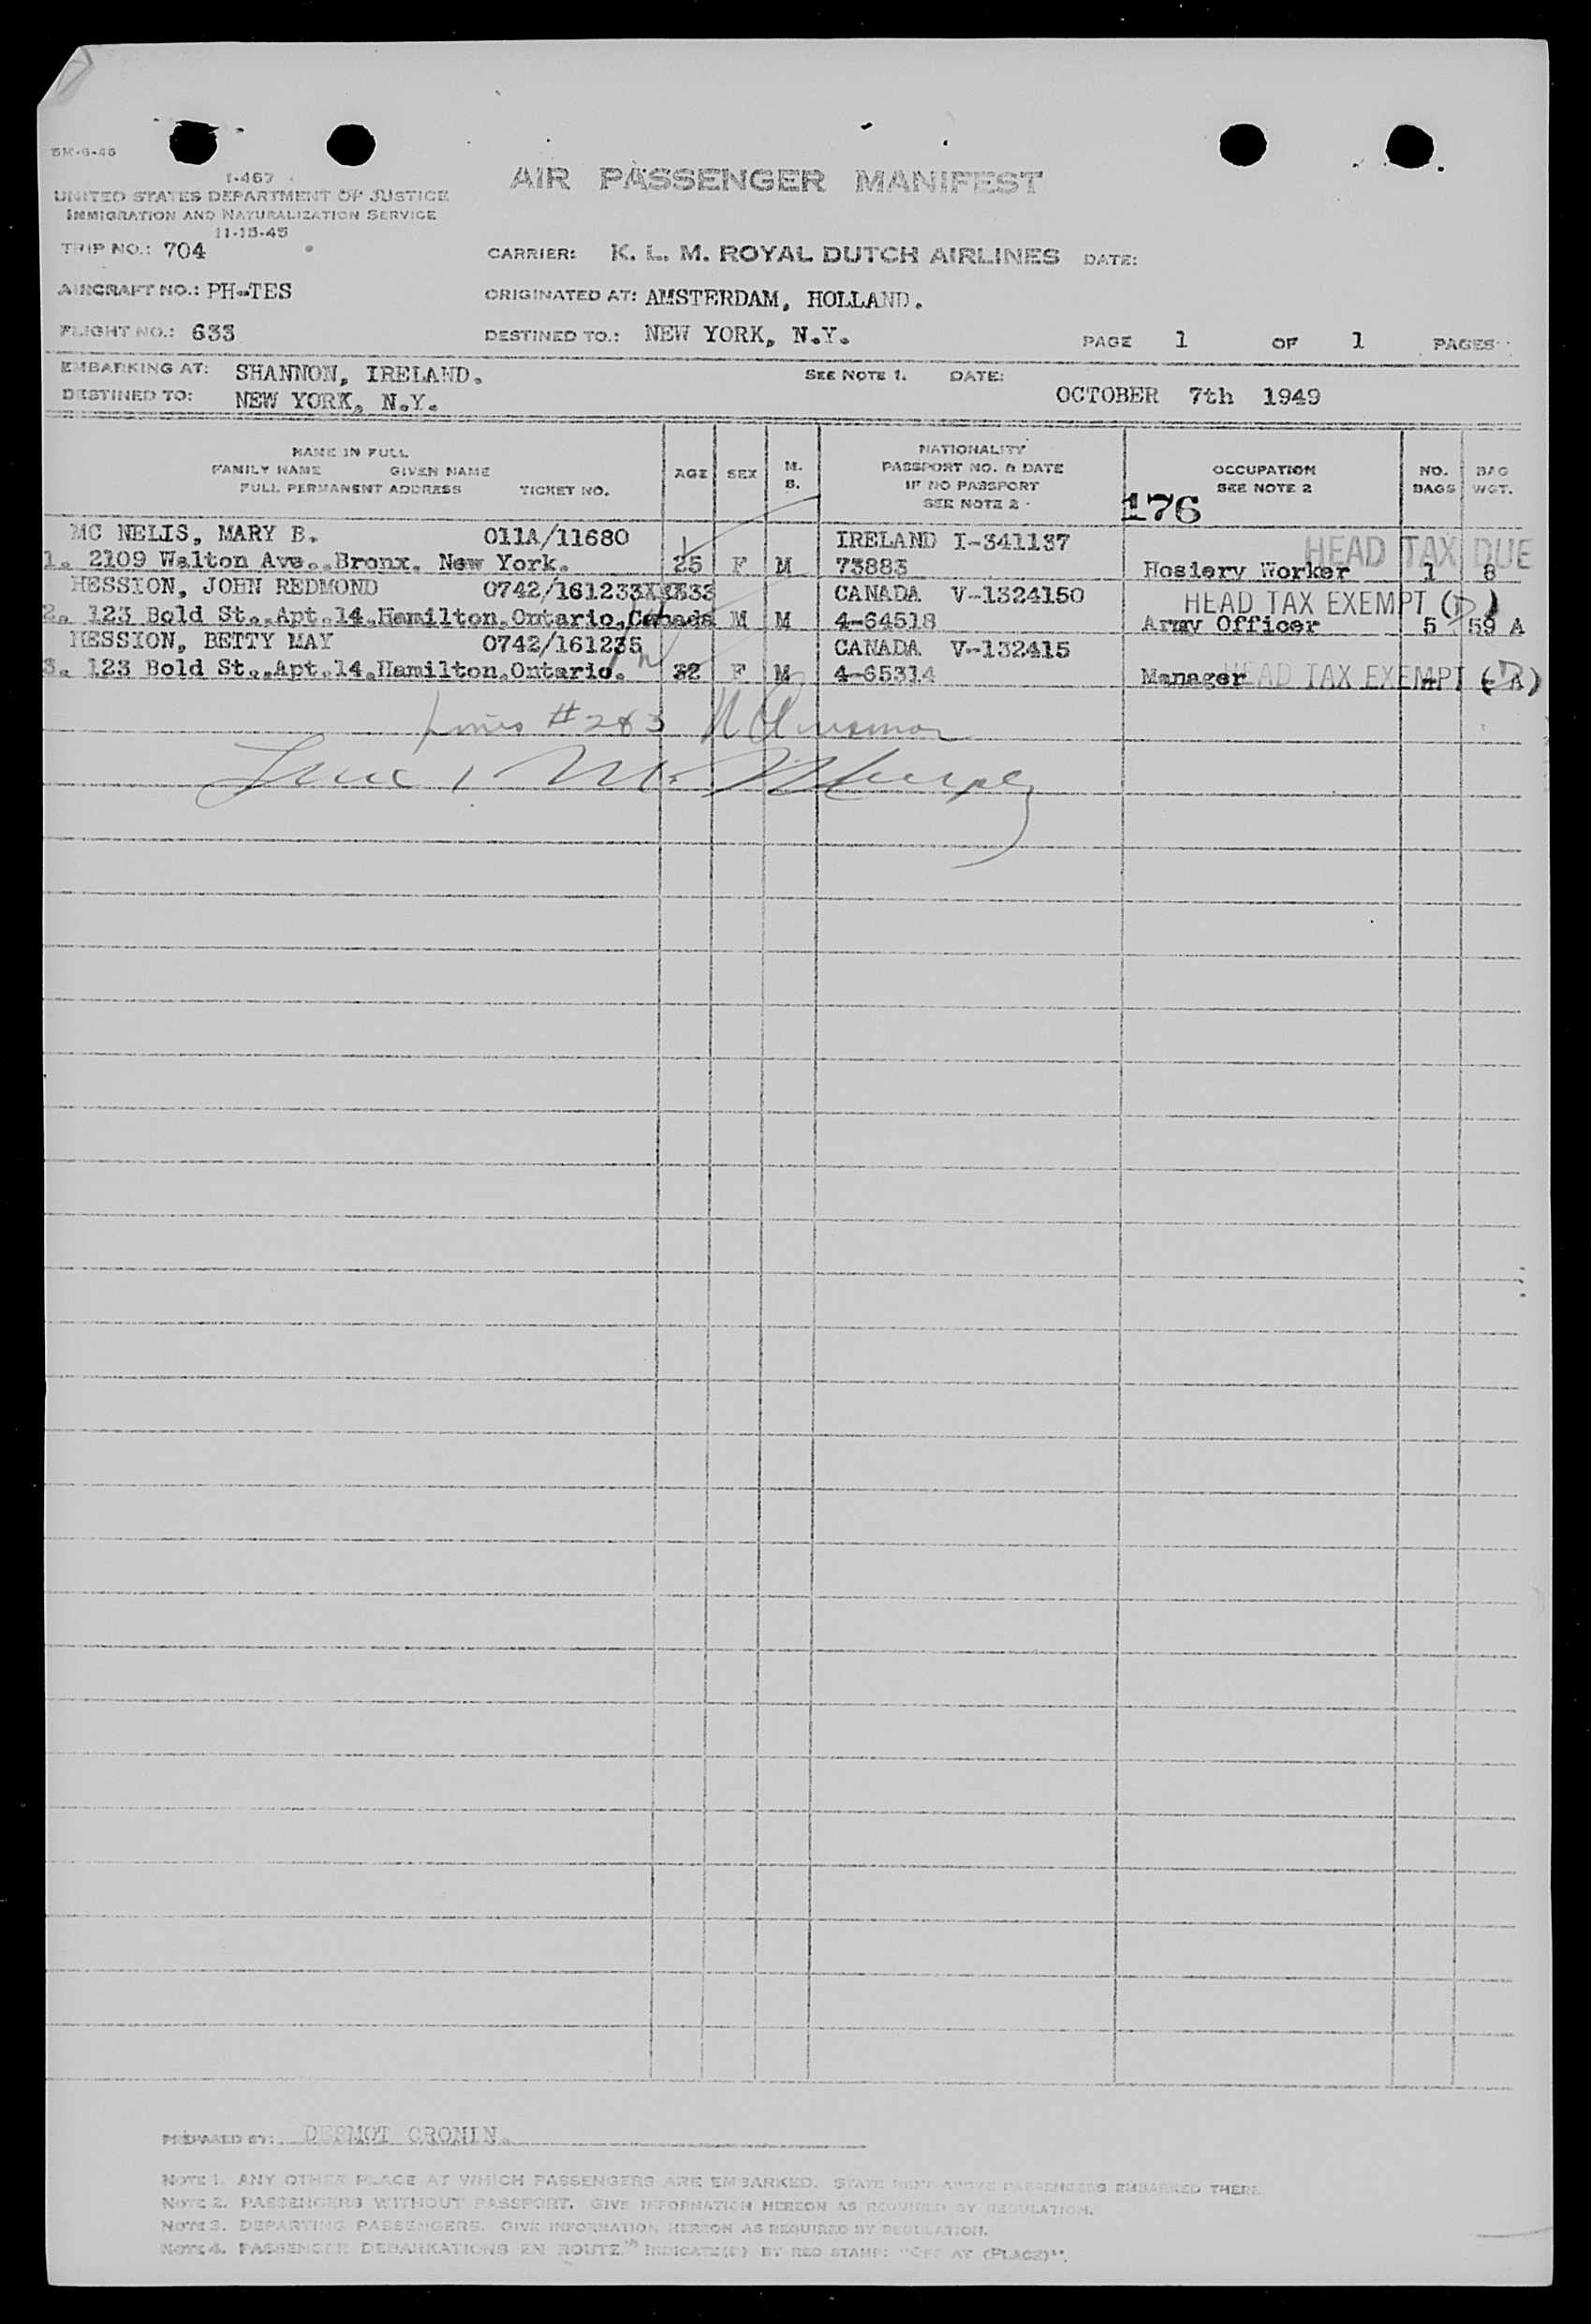 5M-6-46
I-467
UNITED STATES DEPARTMENT OF JUSTICE
IMMIGRATION AND NATURALIZATION SERVICE
11-15-45
AIR PASSENGER MANIFEST
TRIP NO.: 704
CARRIER: K. L. M. ROYAL DUTCH AIRLINES DATE:
AIRCRAFT NO.: PH-TES
ORIGINATED AT: AMSTERDAM, HOLLAND.
FLIGHT NO.: 633
DESTINED TO.: NEW YORK, N.Y.
PAGE 1 OF 1 PAGES
EMBARKING AT: SHANNON, IRELAND. SEE NOTE 1. DATE:
DESTINED TO: NEW YORK, N.Y. OCTOBER 7th 1949
NAME IN FULL
FAMILY NAME GIVEN NAME
FULL PERMANENT ADDRESS TICKET NO.
AGE SEX M. S.
NATIONALITY
PASSPORT NO. & DATE
IF NO PASSPORT
SEE NOTE 2
OCCUPATION
SEE NOTE 2
NO. BAGS
BAG WGT.
176
MC NELIS, MARY B. 011A/11680 IRELAND I-341137 HEAD TAX DUE
1. 2109 Walton Ave., Bronx. New York. 25 F M 73883 Hosiery Worker 1 8
HESSION, JOHN REDMOND 0742/161233 CANADA V-1324150 HEAD TAX EXEMPT (D)
2. 123 Bold St., Apt. 14. Hamilton. Ontario. Canada M M 4-64518 Army Officer 5 59 A
HESSION, BETTY MAY 0742/161235 CANADA V-132415
3. 123 Bold St., Apt. 14. Hamilton. Ontario. 32 F M 4-65314 Manager HEAD TAX EXEMPT
Lines #2&3
Line 1
PREPARED BY: DERMOT CRONIN.
NOTE 1. ANY OTHER PLACE AT WHICH PASSENGERS ARE EMBARKED. STATE NEXT ABOVE PASSENGERS EMBARKED THERE.
NOTE 2. PASSENGERS WITHOUT PASSPORT. GIVE INFORMATION HEREON AS REQUIRED BY REGULATION.
NOTE 3. DEPARTING PASSENGERS. GIVE INFORMATION HEREON AS REQUIRED BY REGULATION.
NOTE 4. PASSENGER DEBARKATIONS EN ROUTE. INDICATE(D) BY RED STAMP: "OFF AT (PLACE)".